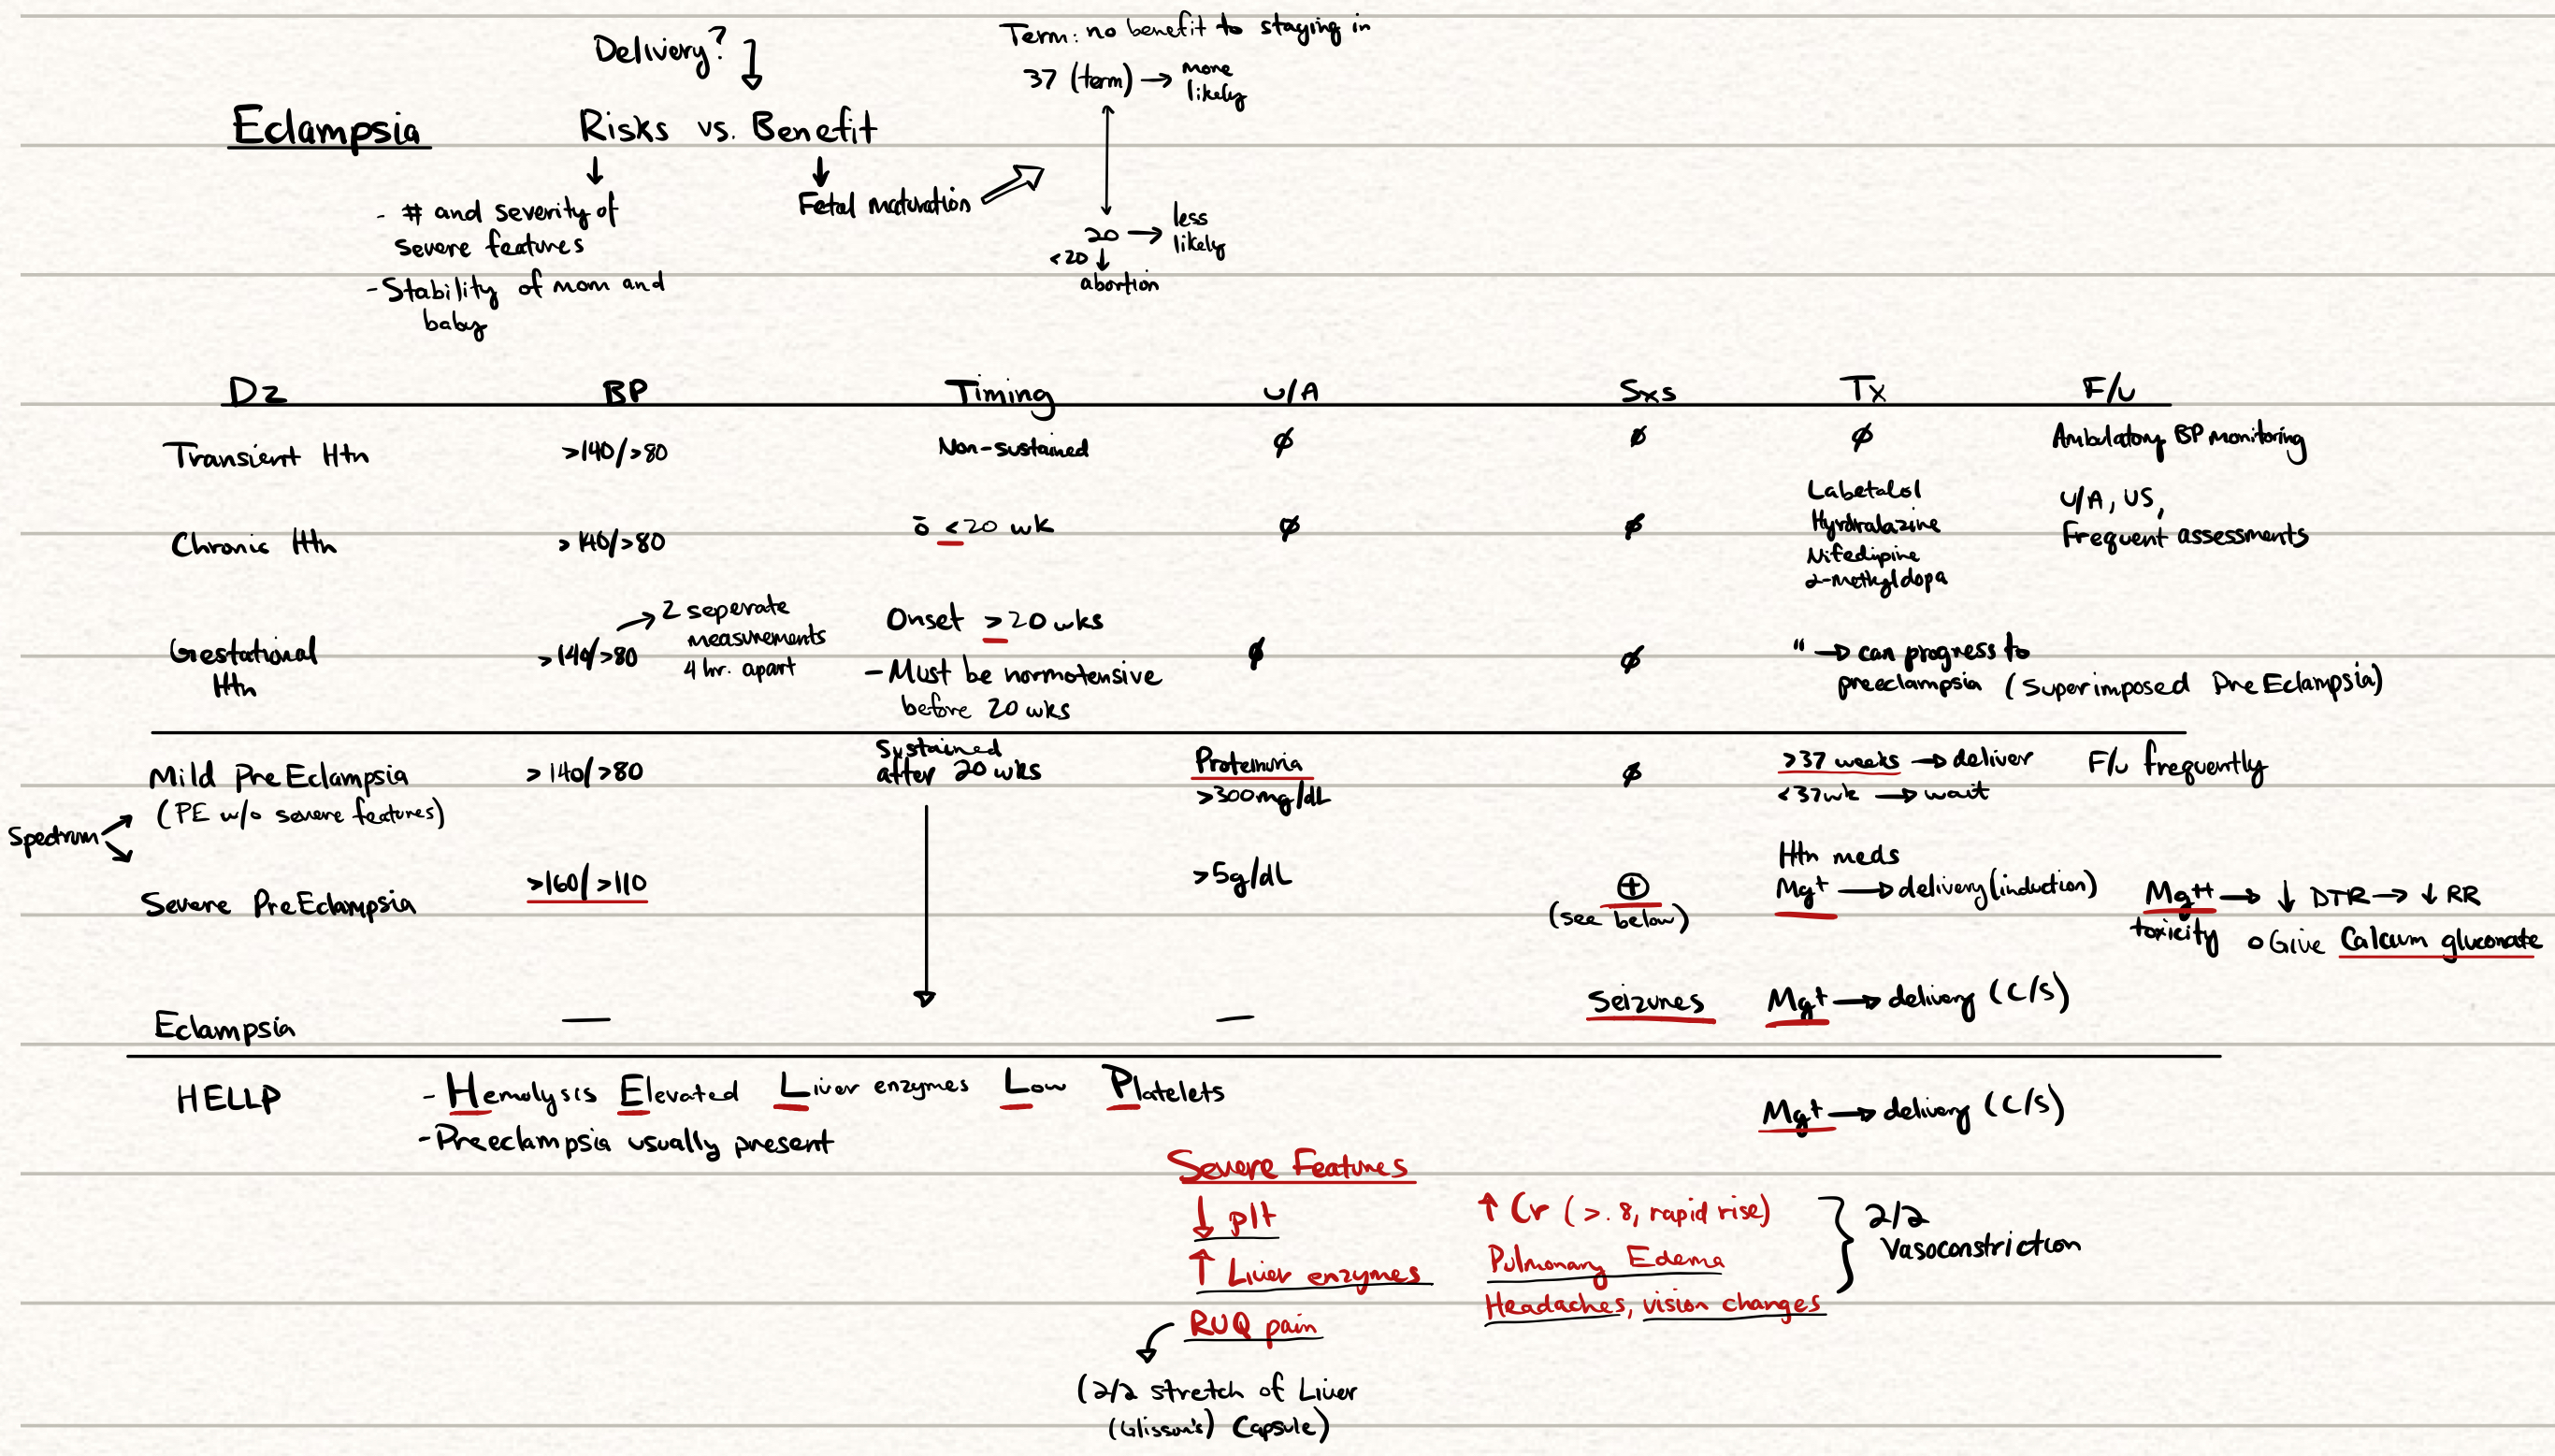 Delivery?
Term: no benefit to staying in
37 (term) → more
likely
Eclampsia
Risks vs. Benefit
- # and severity of
severe features
- Stability of mom and
baby
Fetal maturation
20 → less
likely
<20 ↓
abortion
Dz BP Timing U/A Sxs Tx F/u
Transient Htn >140/>80 Non-sustained ∅ ∅ ∅ Ambulatory BP monitoring
Chronic Htn >140/>80 ō <20 wk ∅ ∅
Labetalol
Hyrdralazine
Nifedipine
α-methyldopa
U/A, US,
Frequent assessments
Gestational
Htn
>140/>80 → 2 seperate
measurements
4 hr. apart
Onset >20 wks
- Must be normotensive
before 20 wks
∅ ∅
" → can progress to
preeclampsia (Superimposed PreEclampsia)
Mild PreEclampsia
(PE w/o severe features)
>140/>80
Sustained
after 20 wks
Proteinuria
>300mg/dL
∅
>37 weeks → deliver
<37wk → wait
F/u frequently
Spectrum
Severe PreEclampsia
>160/>110
>5g/dL
⊕
(see below)
Htn meds
Mg+ → delivery (induction)
Mg++ → ↓ DTR → ↓ RR
toxicity
o Give Calcium gluconate
Eclampsia — — Seizures Mg+ → delivery (C/S)
HELLP
- Hemolysis Elevated Liver enzymes Low Platelets
- Preeclampsia usually present
Mg+ → delivery (C/S)
Severe Features
↓ plt
↑ Liver enzymes
RUQ pain
(2/2 stretch of Liver
(Glisson's) Capsule)
↑ Cr (>.8, rapid rise)
Pulmonary Edema
Headaches, vision changes
2/2
Vasoconstriction